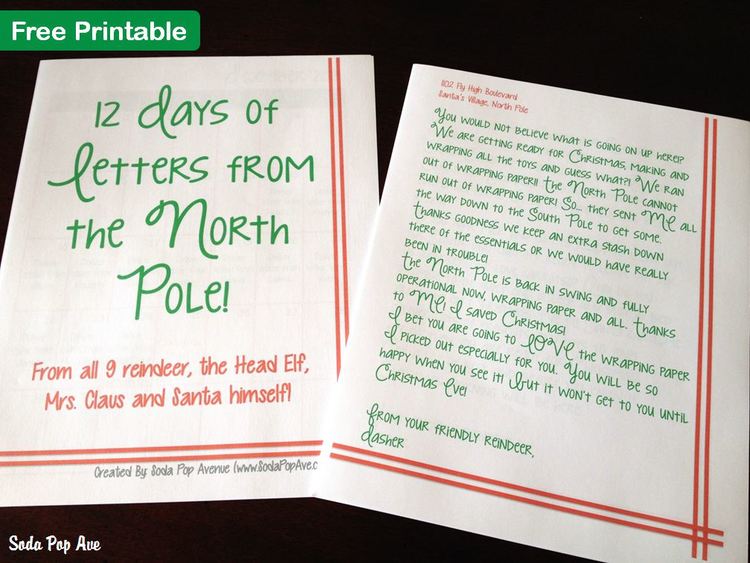 Free Printable
12 days of
Letters from
the North
Pole!
From all 9 reindeer, the Head Elf,
Mrs. Claus and Santa himself!
Created By: Soda Pop Avenue (www.SodaPopAve.c
1102 Fly High Boulevard
Santa's Village, North Pole
You would not believe what is going on up here!?
We are getting ready for Christmas, making and
wrapping all the toys and guess what?! We ran
out of wrapping paper!! The North Pole cannot
run out of wrapping paper! So... they sent ME all
the way down to the South Pole to get some.
Thanks goodness we keep an extra stash down
there of the essentials or we would have really
been in trouble!
The North Pole is back in swing and fully
operational now, wrapping paper and all. Thanks
to ME! I saved Christmas!
I bet you are going to LOVE the wrapping paper
I picked out especially for you. You will be so
happy when you see it! But it won't get to you until
Christmas Eve!
From your friendly reindeer,
Dasher
Soda Pop Ave